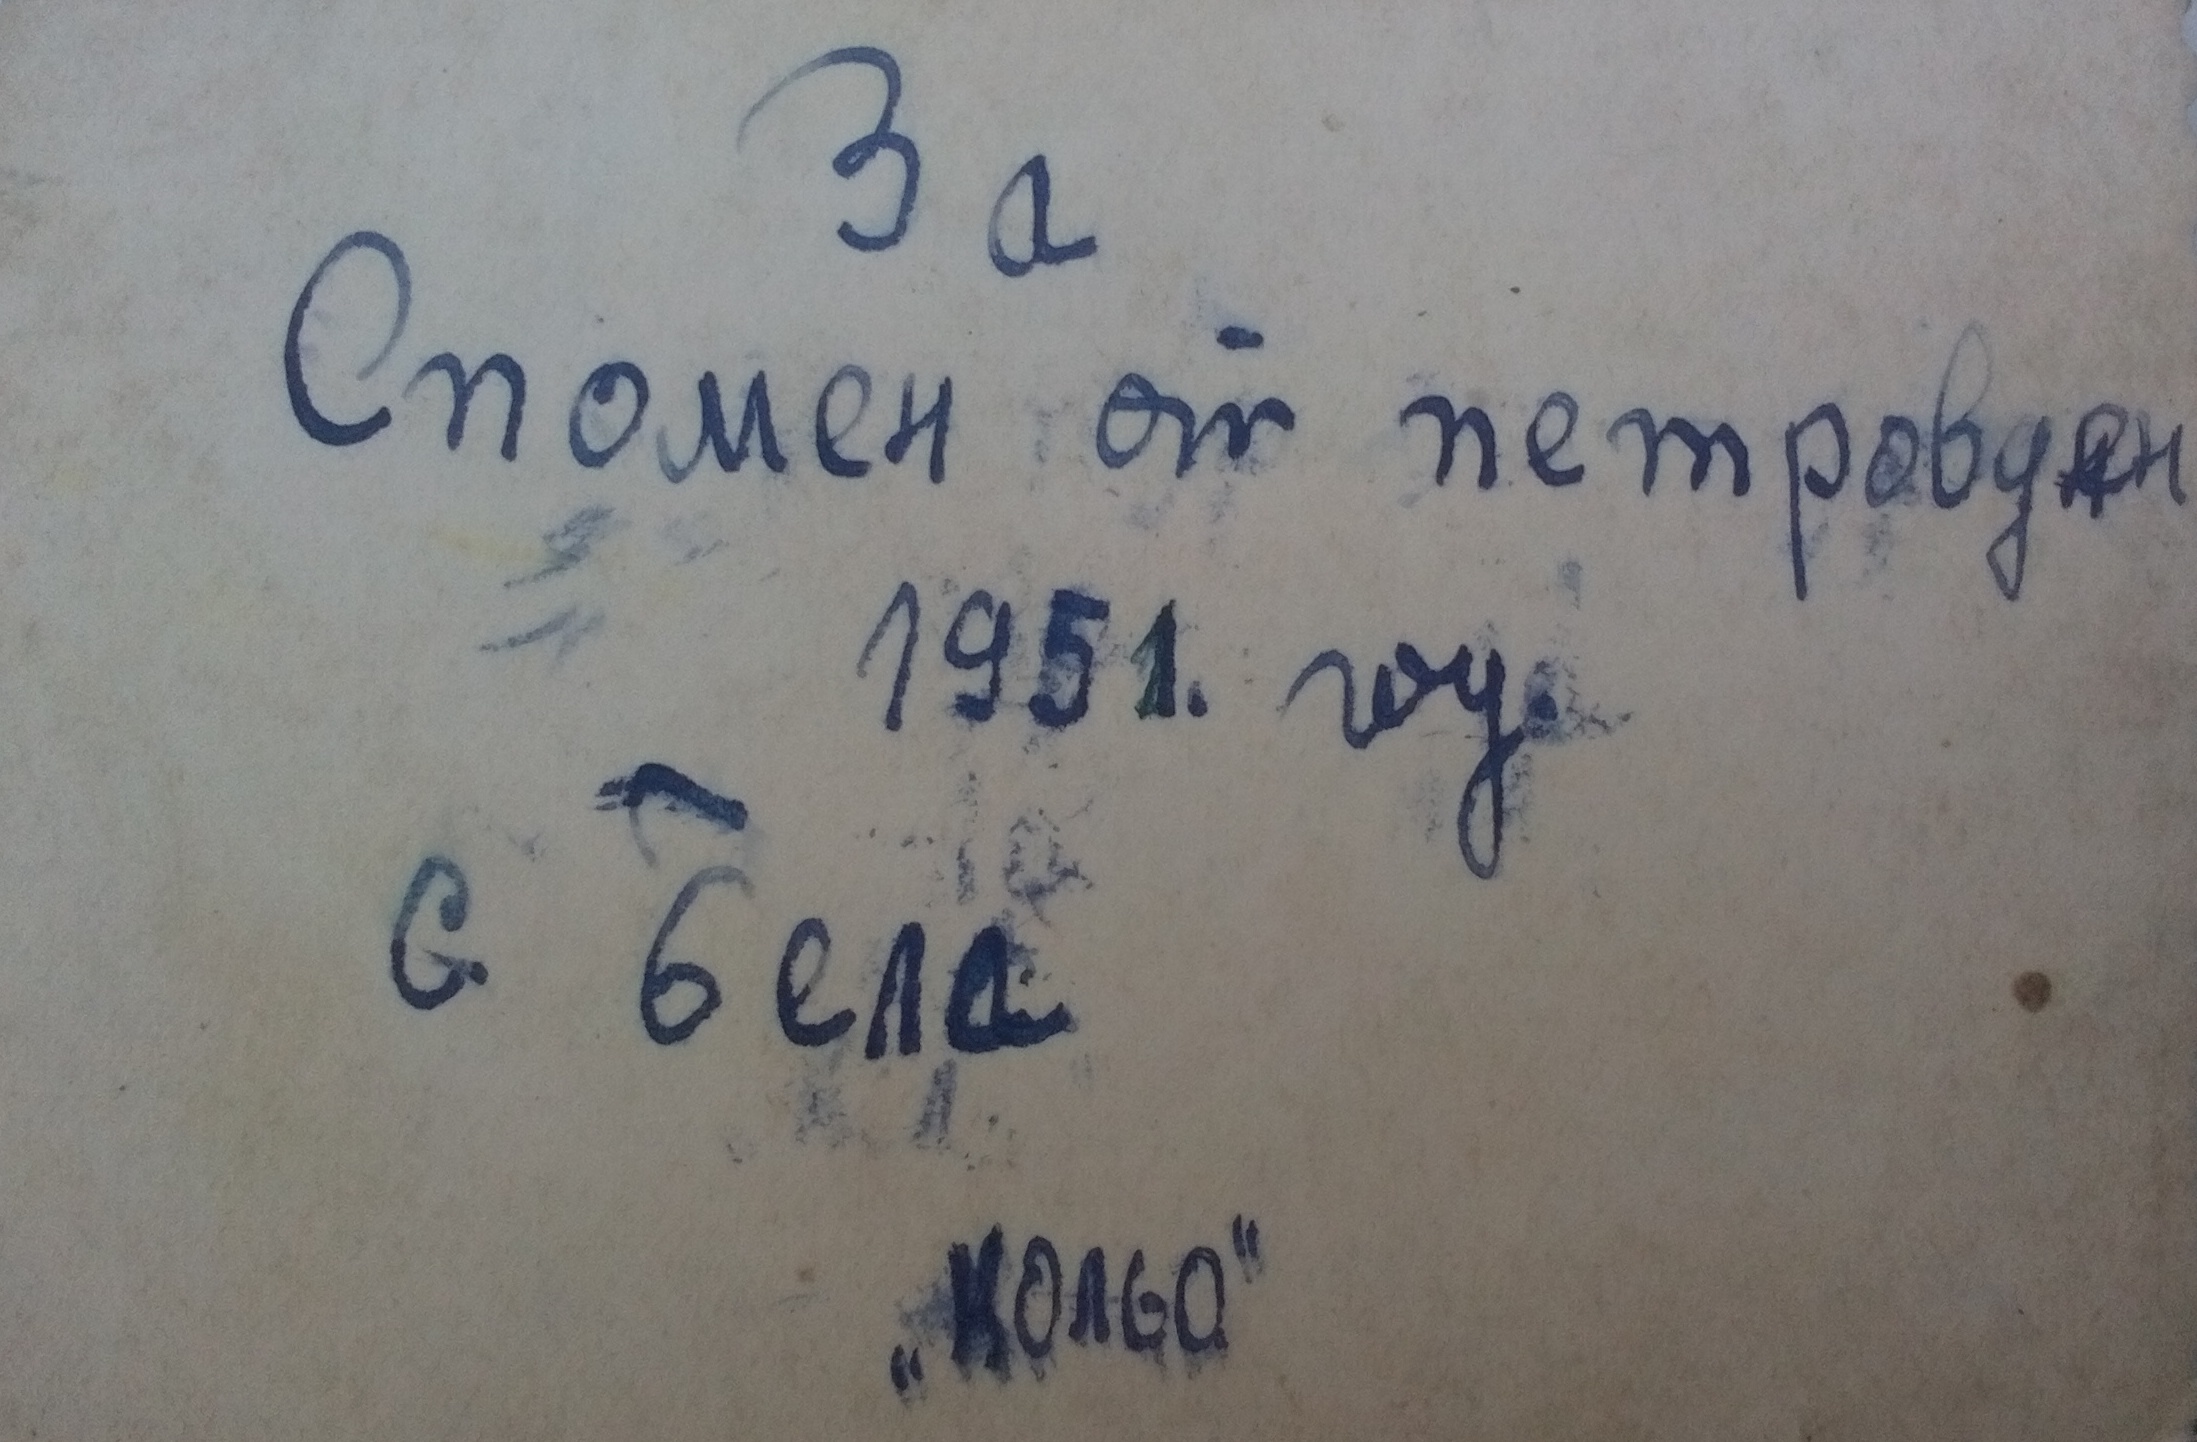 За
Спомен от петровден
1951. год.
с. Бела
„Кольо“